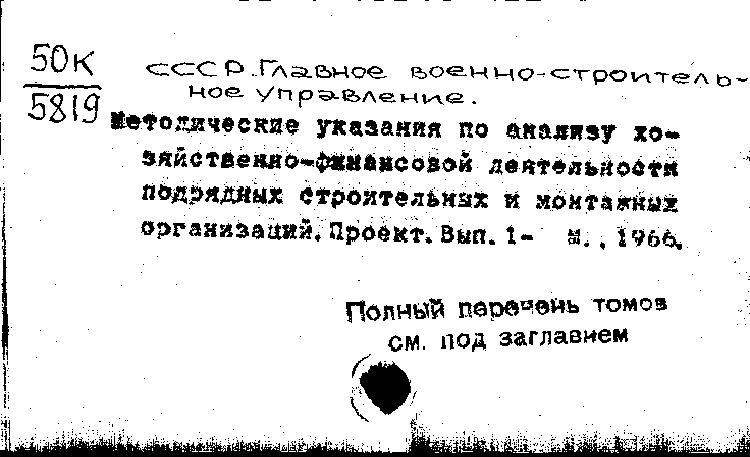 50К
5819
СССР. Главное военно-строитель-
ное управление.
Методические указания по анализу хо-
зяйственно-финансовой деятельности
подрядных строительных и монтажных
организаций. Проект. Вып. 1- М., 1966.
Полный перечень томов
см. под заглавием